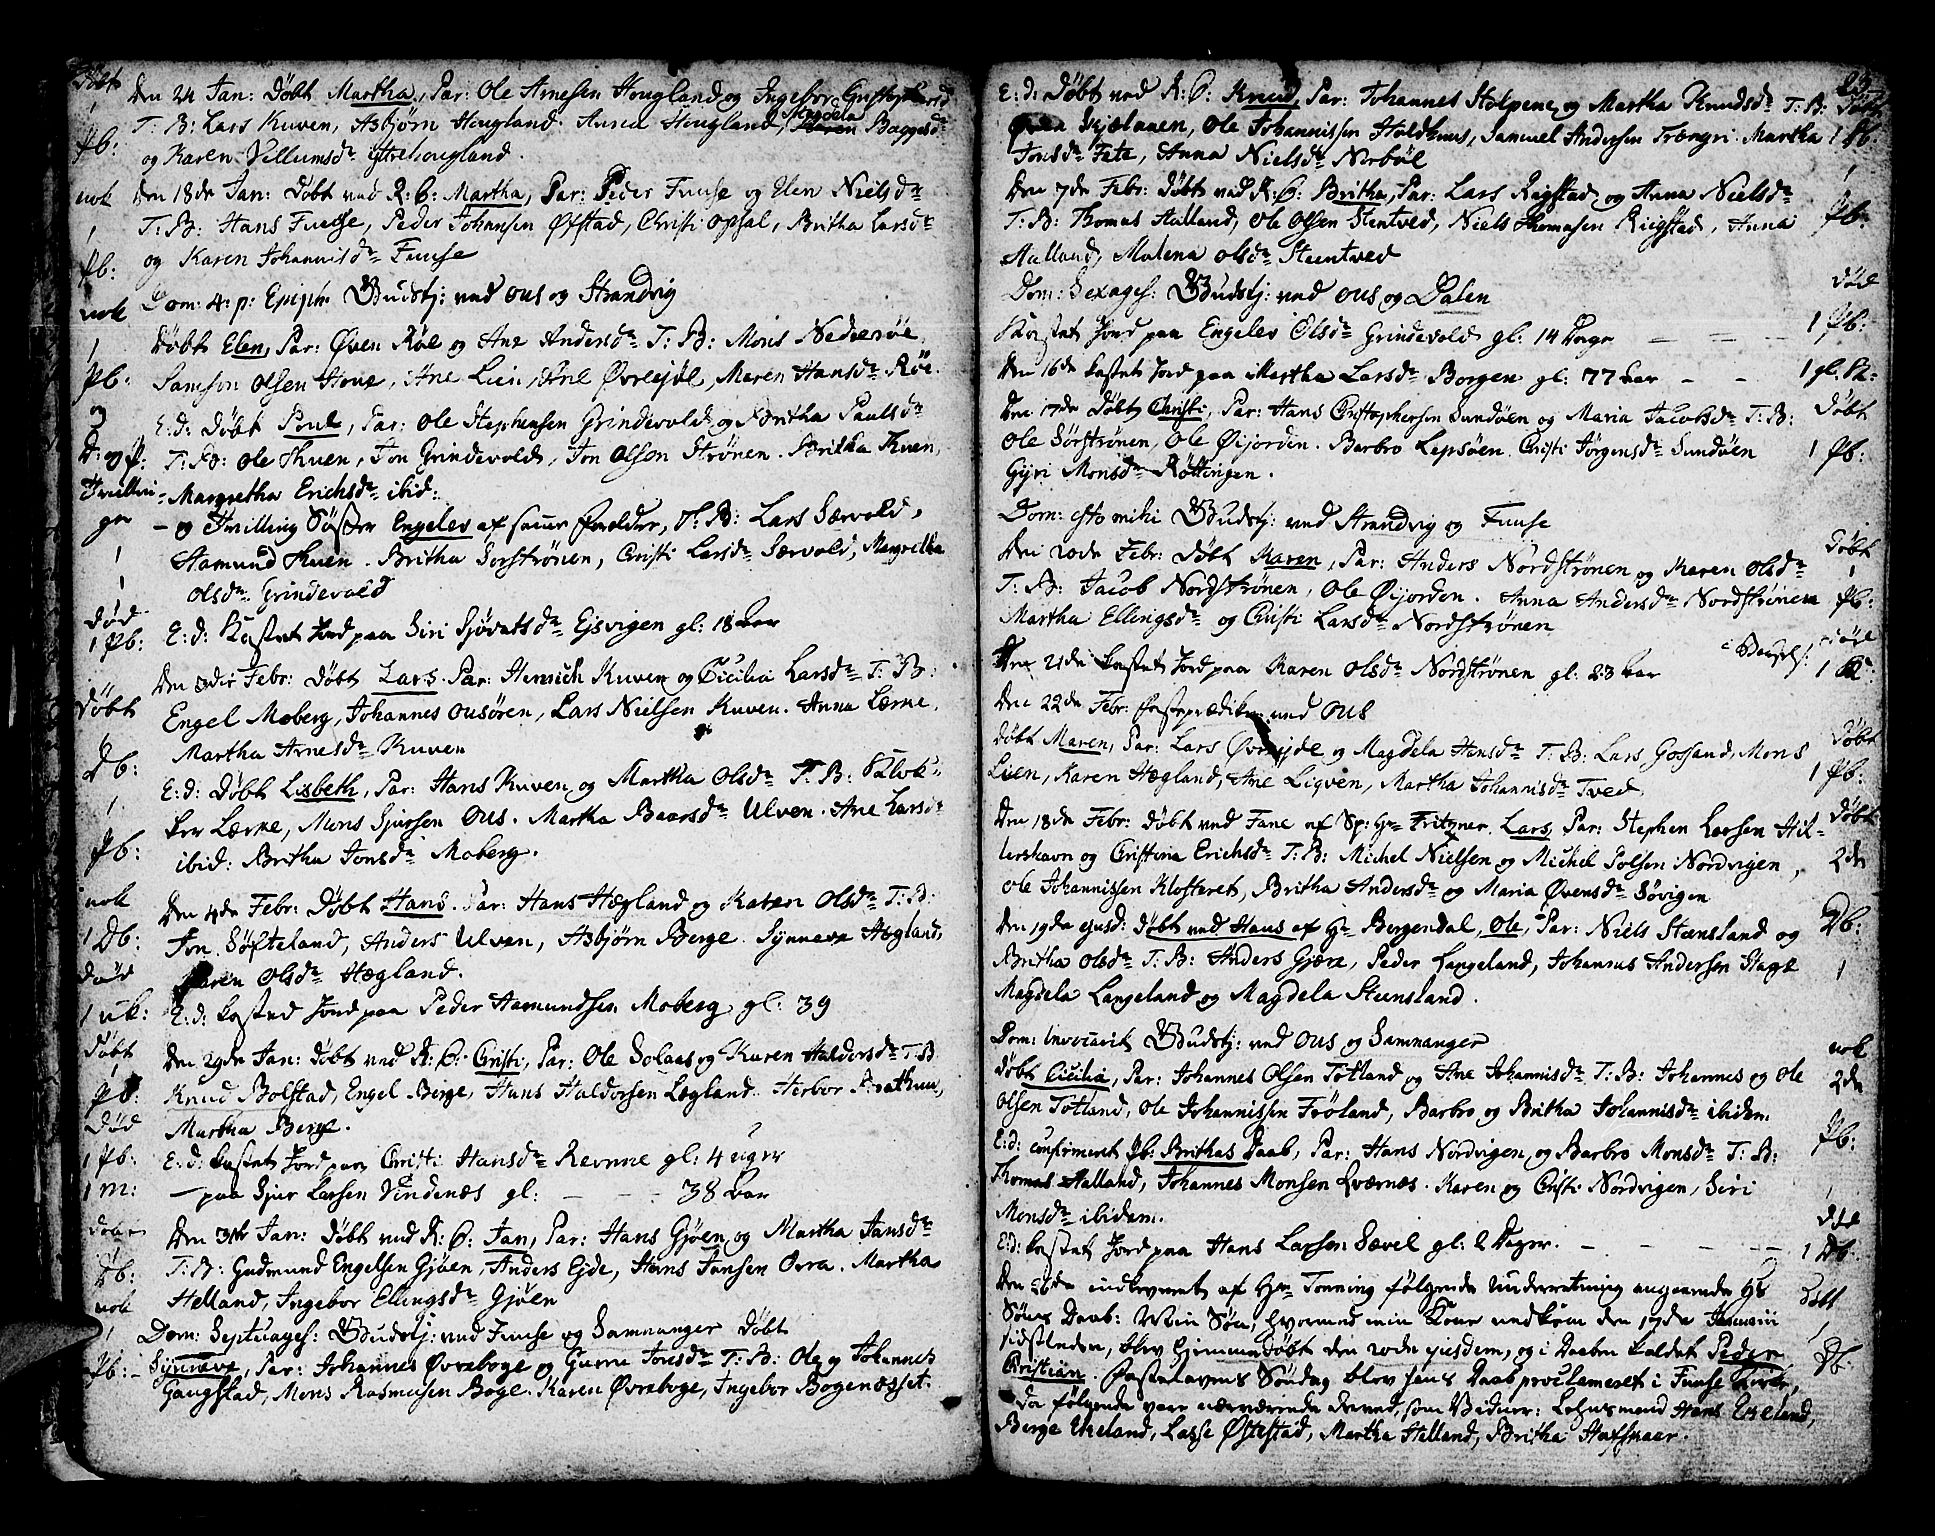 Døbt
Den 24 Jan: Døbt Martha, Par: Ole Arnesen Hougland og Ingebor
T: B: Lars Kuven, Asbjørn Hougland. Anna Hougland, Magdela Baggesdr
og Karen Villumsdr ÿttrehougland.
Den 18de Jan: Døbt ved R: C: Martha, Par: Peder Fuuse og Elen Nielsdr
T: B: Hans Fuuse, Peder Johansen Øfstad, Christi Opsal, Britha Larsdr
og Karen Johannisdr Fuuse
Dom: 4: p: Epiph: Gudstj: ved Ous og Strandvig
Døbt Elen, Par: Øven Røe og Ane Andersdr T: B: Mons Nederøe
Samson Olsen Hove, Ane Lien, Ane Øvreejde, Maren Hansdr Røe.
E: d: Døbt Poul, Par: Ole Stephensen Grindevold og Britha Paulsdr
T: B: Ole Kuen, Jon Grindevold, Jon Olsen Strønen. Britha Kuen,
Margretha Erichsdr ibid:
og Tvilling Søster Engelev af samme Forældre, T: B: Lars Særvold,
Hamund Kuen. Britha Sørstrønen, Christi Larsdr Særvold, Margretha
Olsdr Grindevold
E: d: Kastet Jord paa Siri Sjøvatsdr Ejsvigen gl: 18 Aar
Den 3die Febr: Døbt Lars. Par: Henrich Kuven og Cicilia Larsdr T: B:
Engel Moberg, Johannes Ousøren, Lars Nielsen Kuven. Anna Lærne,
Martha Arnesdr Kuven
E: d: Døbt Lisbeth, Par: Hans Kuven og Martha Olsdr T: B:
Lærne, Mons Sjursen Ous. Martha Baarsdr Ulven. Ane Larsdr
ibid: Britha Jonsdr Moberg.
Den 4de Febr: Døbt Hans. Par: Hans Hægland og Karen Olsdr T: B:
Jon Søfteland, Anders Ulven, Asbjørn Berge. Synneve Hægland,
Karen Olsdr Hægland.
E: d: Kasted Jord paa Peder Hamundsen Moberg gl: 39
Den 29de Jan: Døbt ved R: C: Christi, Par: Ole Solaas og Karen Haldorsdr T: B
Knud Bolstad, Engel Berge, Hans Haldorsen Lægland. Herbor
Martha Berge.
E: d: Kastet Jord paa Christi Hansdr Revnne gl: 4 uger
– paa Sjur Larsen Vindenæs gl: – – – 38 Aar
Den Jan: Døbt ved R: C: Jan, Par: Hans Gjøen og Martha Jansdr
T: B: Gudmund Engelsen Gjøen, Anders Ejde, Hans Jansen Ovra. Martha
Helland, Ingebor Ellingsdr Gjøen
Dom: Septuages: Gudstj: ved Fuuse og Samnanger Døbt
Synneve, Par: Johannes Øvreboge og Gurre Jonsdr T: B: Ole og Johannes
Gaugstad, Mons Rasmusen Boge. Karen Øvreboge, Ingebor Bogenæsset.
E: d: Døbt ved R: C: Knud, Par: Johannes Holpene og Martha Knudsdr T: B:
Skjelaaen, Ole Johannissen Holdhuus, Samuel Andersen Trængri. Martha
Jonsdr Tete, Anna Nielsdr Norbøe
Den 7de Febr: Døbt ved R: C: Britha, Par: Lars Rigstad og Anna Nielsdr
T: B: Thomas Aalland, Ole Olsen Stentved, Niels Thomasen Riegstad, Anna
Aalland, Malena Olsdr Steentved
Dom: Sexages: Gudstj: ved Ous og Dalen
Kastet Jord paa Engelev Olsdr Grindevold gl: 14 Dage
Den 16de Kastet Jord paa Martha Larsdr Borgen gl: 77 Aar
Den 17de Døbt Christi, Par: Hans Christophersen Sundøen og Maria Jacobsdr T: B:
Ole Sørstrønen, Ole Øijorden. Barbro Lepsøen. Christi Jørgensdr Sundøen
Gyri Monsdr Røttingen.
Dom: esto mihi Gudstj: ved Strandvig og Fuuse
Den 20de Febr: Døbt Karen, Par: Anders Nordstrønen og Karen Olsdr
T: B: Jacob Nordstrønen, Ole Øijorden. Anna Andersdr Nordstrønen
Martha Ellingsdr og Christi Larsdr Nordstrønen
Den 21de Kastet Jord paa Karen Olsdr Nordstrønen gl: 23 Aar
Den 22de Febr: Fasteprædiken ved Ous
Døbt Maren, Par: Lars Øvreejde og Magdela Hansdr T: B: Lars Gossand, Mons
Lien, Karen Hægland, Ane Ligven, Martha Johannisdr Tved
Den 18de Febr: Døbt ved Fane af Sp: Hr Fritzner. Lars, Par: Stephen Larsen Hil-
lershavn og Christina Erichsdr T: B: Michel Nielsen og Michel Polsen Nordvigen,
Ole Johannissen Klosteret, Britha Andersdr og Maria Øvensdr Søvigen
Den 19de ejusd: Døbt ved Haus af Hr Bergendal, Ole, Par: Niels Stensland og
Britha Olsdr T: B: Anders Gjære, Peder Langeland, Johannes Andersen Hage
Magdela Langeland og Magdela Steensland.
Dom: Invocavit Gudstj: ved Ous og Samnanger
Døbt Cicilia, Par: Johannes Olsen Tøtland og Ane Johannisdr T: B: Johannes og Ole
Olsen Tøtland, Ole Johannissen Frøland, Barbro og Britha Johannisdr ibidem
E: d: confirmeret Pb: Brithas Daab, Par: Hans Nordvigen og Barbro Monsdr T: B:
Thomas Aalland, Johannes Monsen Qværnes. Karen og Christi Nordvigen, Siri
Monsdr ibidem.
E: d: Kastet Jord paa Hans Larsen Sævel gl: 2 Dage.
Den 26de indleveret af Hr Tonning følgende Underretning angaaende Hs
Søns Daab: Min Søn, hvormed min Kone nedkom den 17de Januarii
sidstleden, blev hjemmedøbt den 20de ejusdem, og i Daaben kaldet Peder
Christian. Fastelavens Søndag blev hans Daab proclameret i Fuuse Kirke,
Da følgende vare nærværende derved, som Vidner: Lehnsmand Hans Ekeland,
Berge Ekeland, Lasse Øftestad, Martha Helland, Britha Hafskaar.